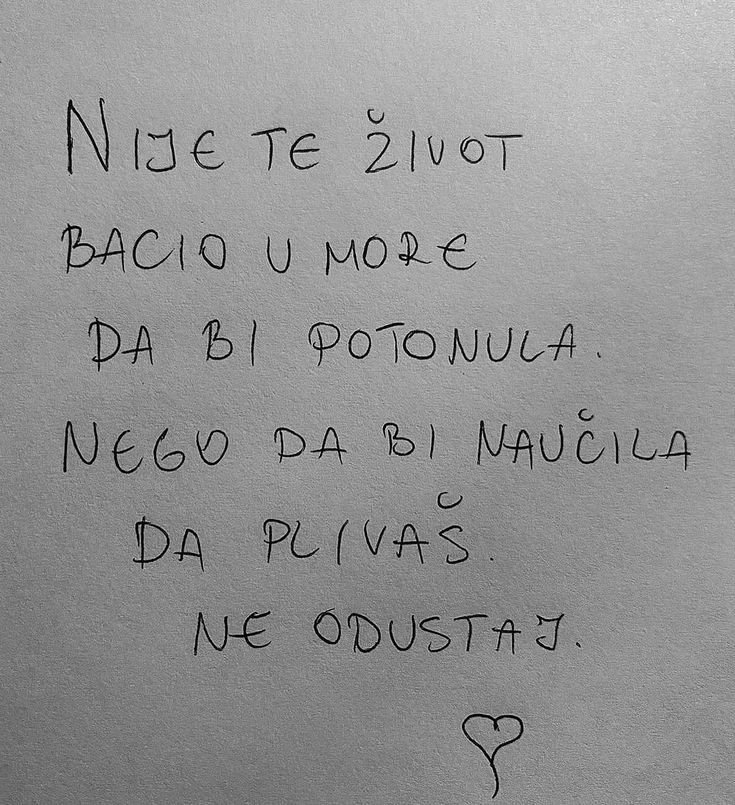 NIJE TE ŽIVOT
BACIO U MORE
DA BI POTONULA.
NEGO DA BI NAUČILA
DA PLIVAŠ.
NE ODUSTAJ.